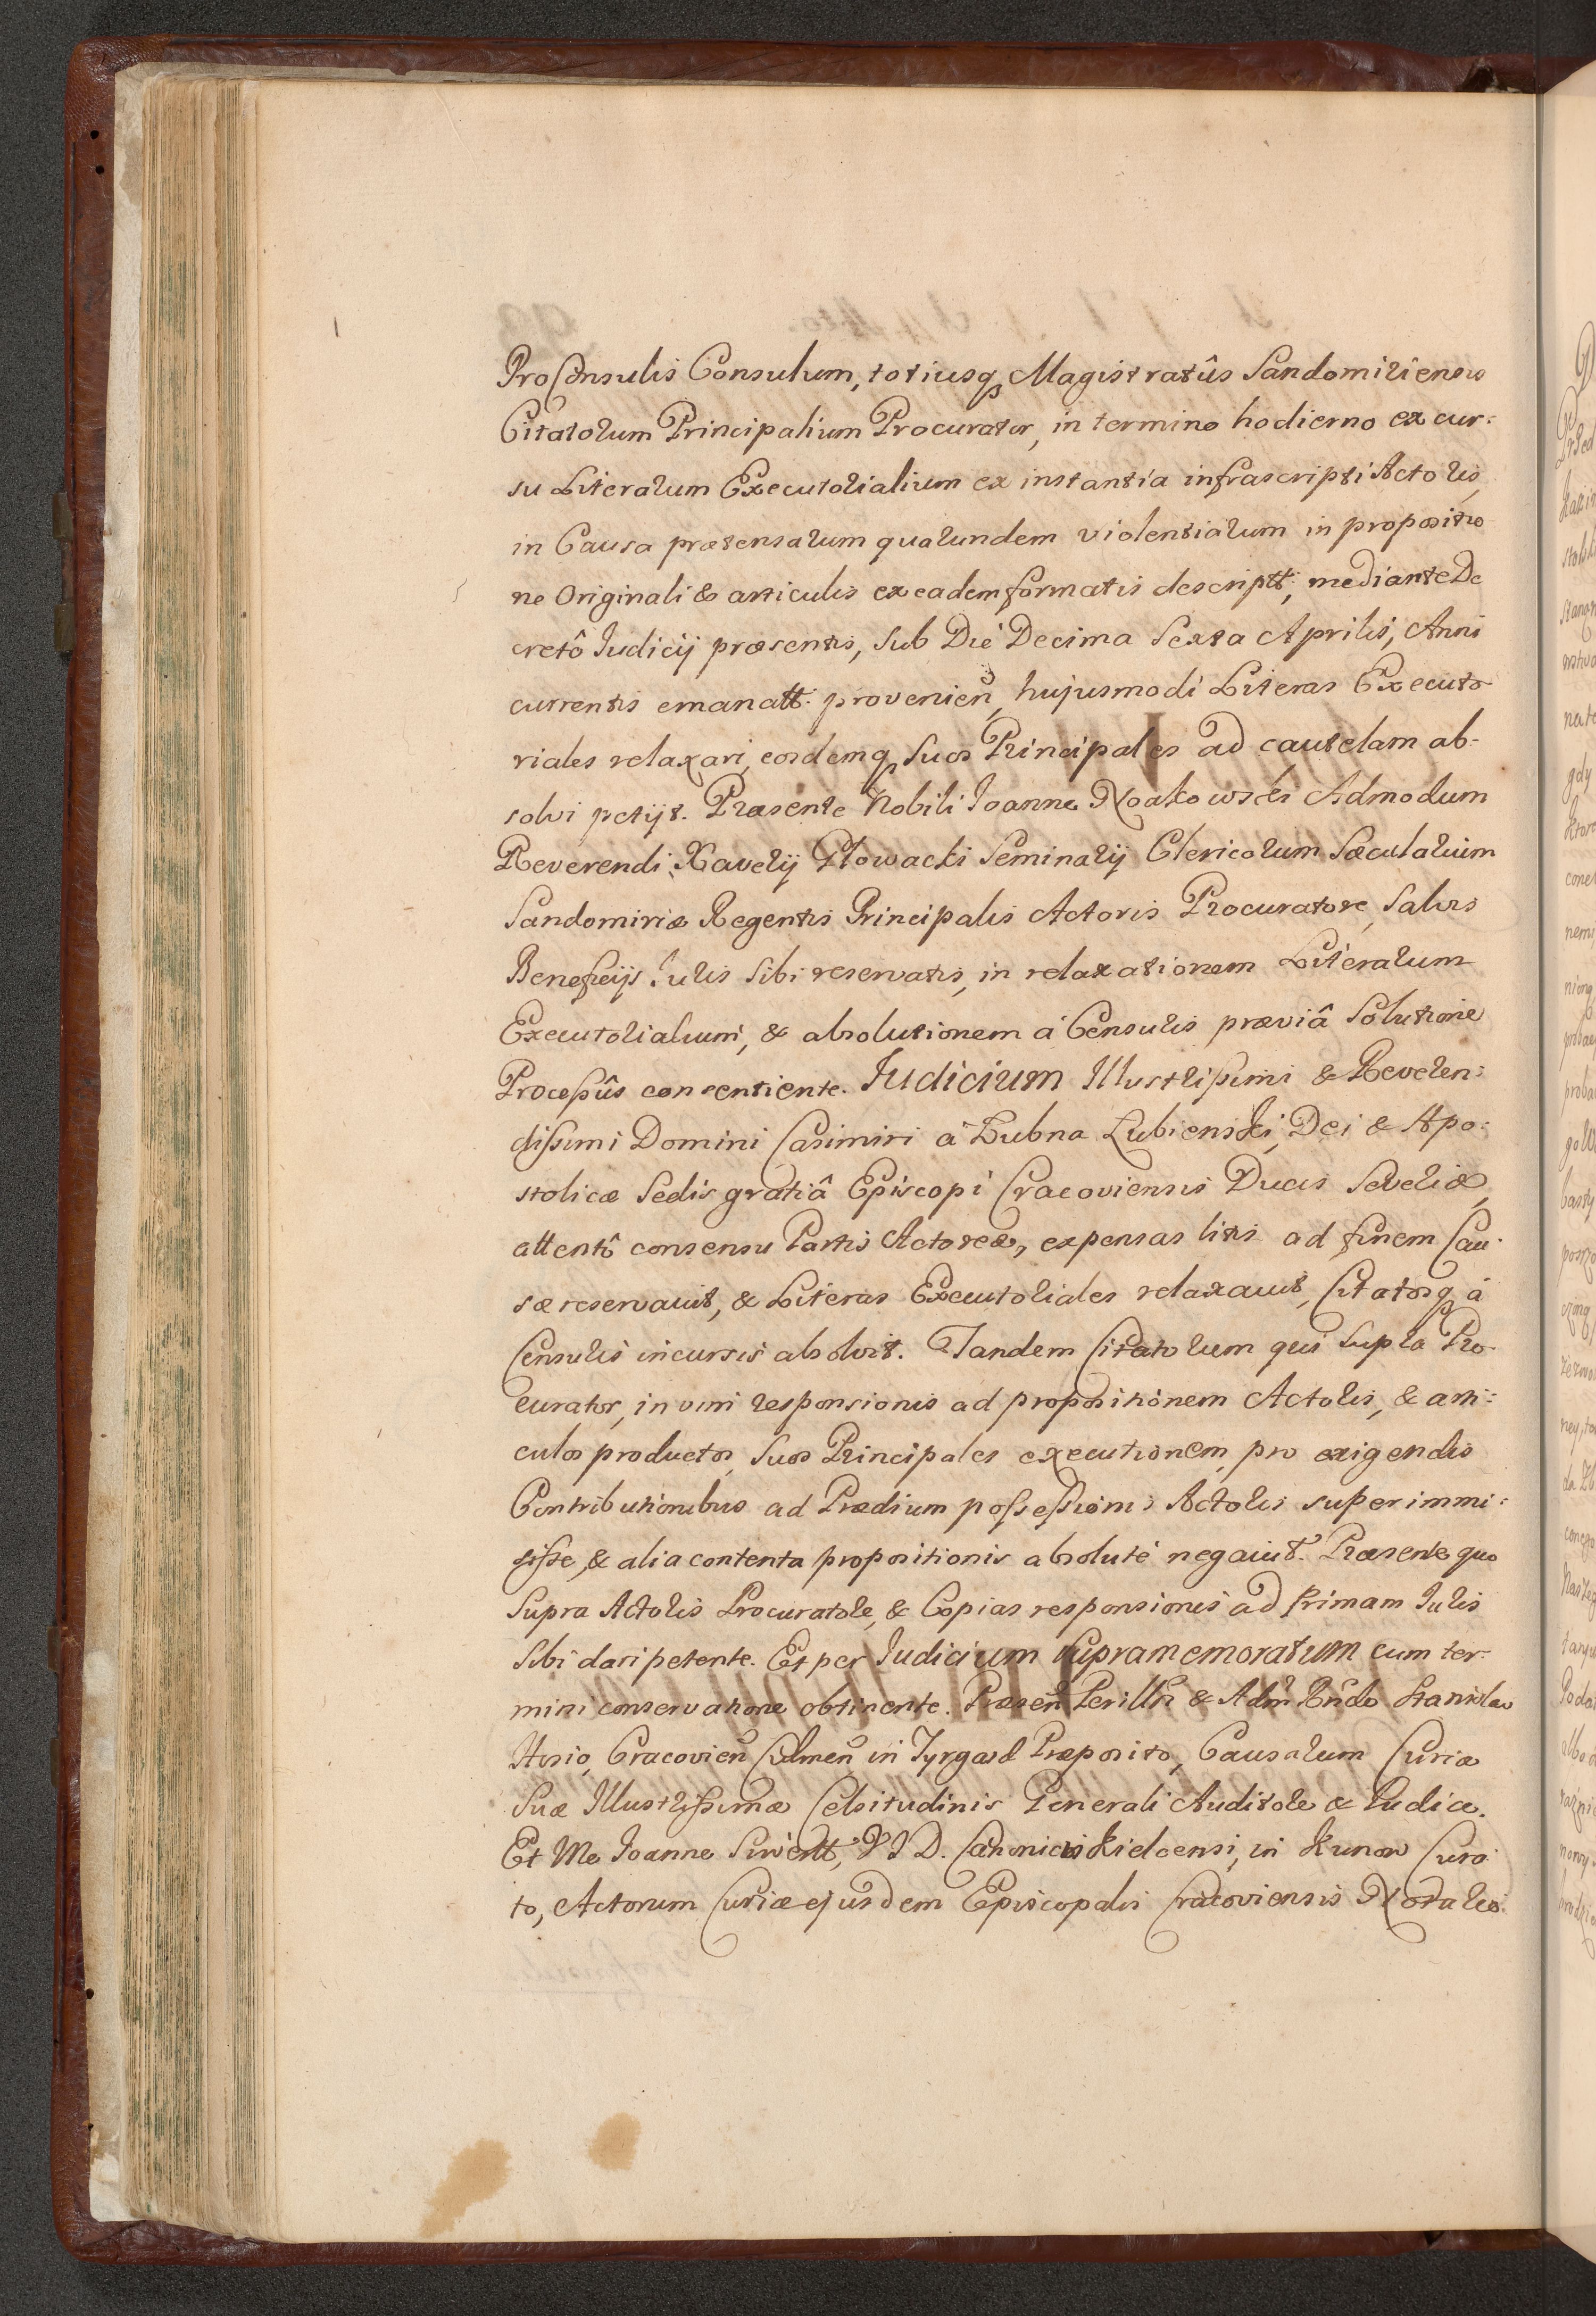 ProConsulis Consulum, totiusq Magistratûs Sandomiriensis
Citatorum Principalium Procurator, in termino hodierno ex cur:
su Literarum Executorialium ex instantia infrascripti Actoris,
in Causa prætensarum quarundem violentiarum in propositio
ne Originali & articulis ex eadem formatis descriptt; mediante De
cretô Iudicij præsentis, Sub Die Decima Sexta Aprilis, Anni
currentis emanatt: provenień, hujusmodi Literas Executo
riales relaxari, eosdemq suos Principales ad cautelam ab-
solvi petijt. Præsente Nobili Ioanne Noakowski Admodum
Reverendi Xaverij Głowacki Seminarij Clericorum Sæcularium
Sandomiriæ Regentis Principalis Actoris Procuratore, salvis
Beneficijs Iuris sibi reservatis, in relaxationem Literarum
Executorialium, & absolutionem à Censuris præviâ Solutione
Processûs consentiente. Iudicium Illustrissimi & Reveren:
dissimi Domini Casimiri à Łubna Łubienski, Dei & Apo:
stolicæ Sedis gratiâ Episcopi Cracoviensis Ducis Severiæ,
attentô consensu Partis Actoreæ, expensas litis ad finem Cau
sæ reservavit, & Literas Executoriales relaxavit, Citatosq à
Censuris incursis absolvit. Tandem Citatorum qui supra Pro
curator, in vim responsionis ad propositionem Actoris, & arti:
culos productos, suos Principales executionem pro exigendis
Contributionibus ad Prædium possessionis Actoris superimmi:
sisse, & alia contenta propositionis absolutè negavit. Præsente quo
Supra Actoris Procuratore, & Copias responsionis ad primam Iuris
sibi dari petente. Et per Iudicium supramemoratum cum ter-
mini conservatione obtinente. Præseń Perillŕi & Adḿ Rńdo Stanislao
Hosio, Cracovień Culmeń in Tyrgard Præposito, Causarum Curiæ
Suæ Illustrissimæ Celsitudinis Generali Auditore & Iudice.
Et Me Ioanne Siwentt, V I D. Canonico Kielcensi, in Kunow Cura
to, Actorum Curiæ ejusdem Episcopalis Cracoviensis Notario.